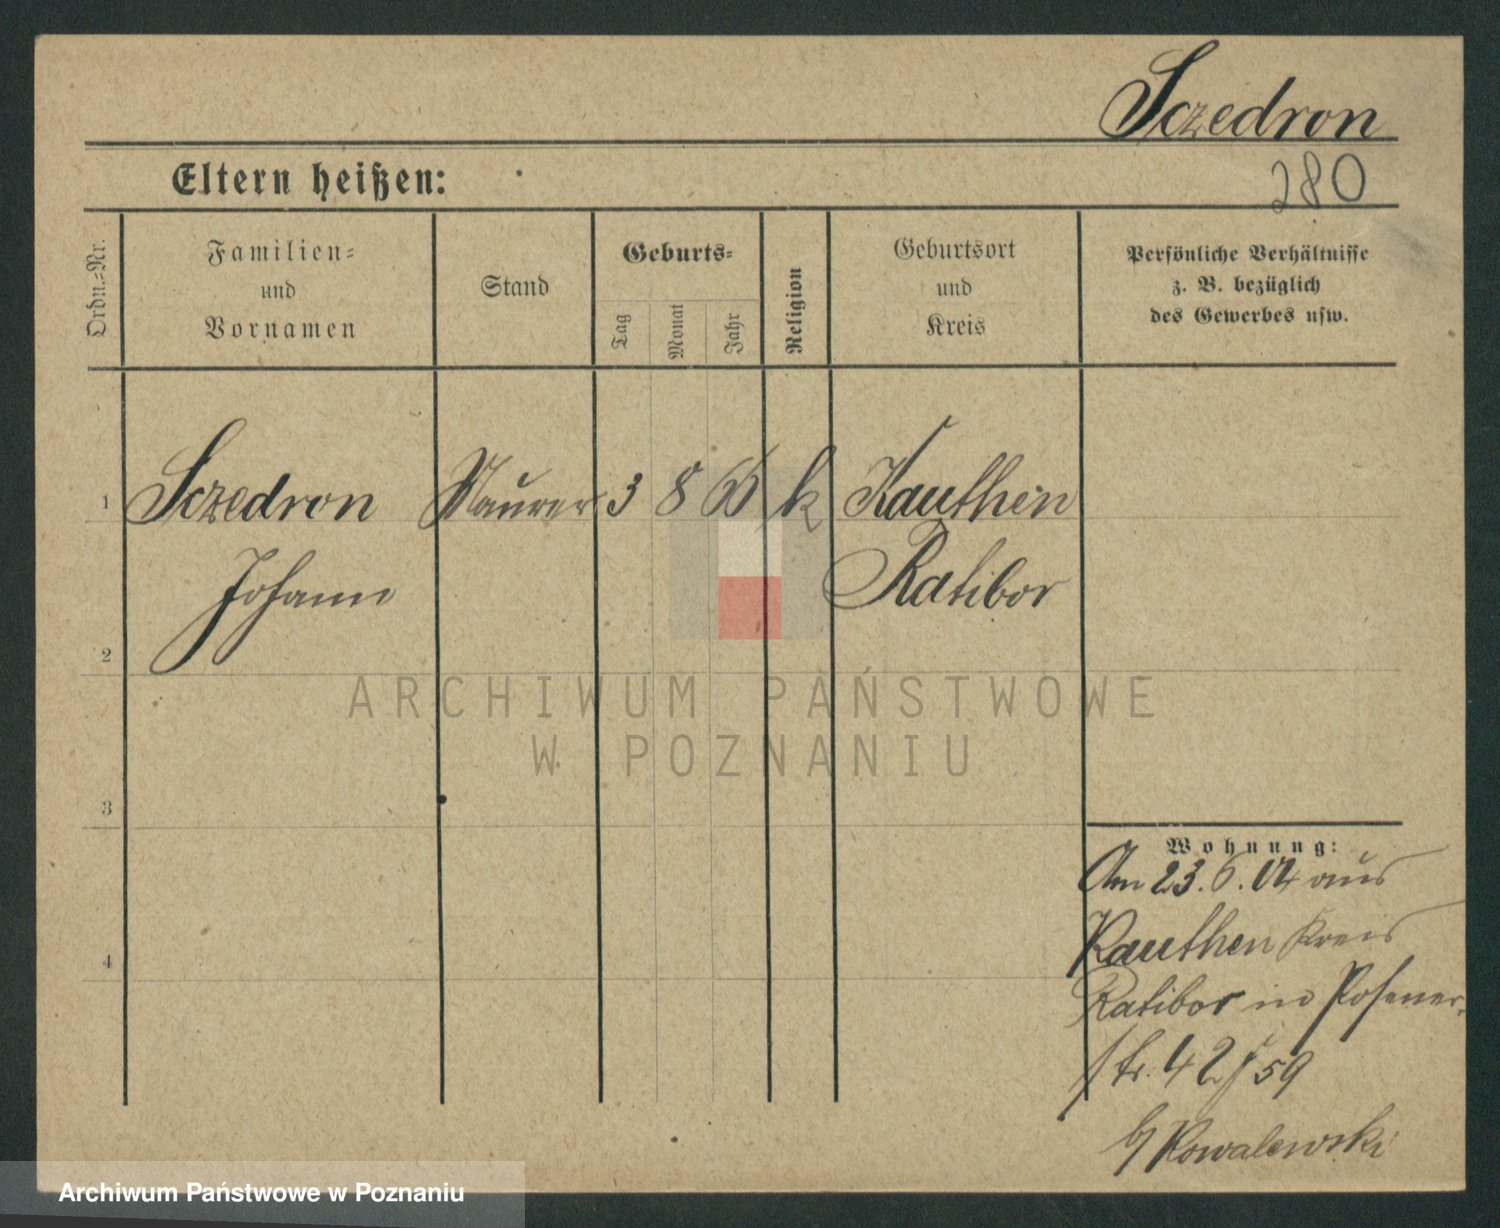 Sczedron
Eltern heißen:
280
Ordn.=Nr.
Familien=
und
Vornamen
Stand
Geburts=
Tag
Monat
Jahr
Religion
Geburtsort
und
Kreis
Persönliche Verhältnisse
z. B. bezüglich
des Gewerbes usw.
1
Sczedron Maurer 3 8 k Kauthen
Johann Ratibor
2
ARCHIWUM PAŃSTWOWE
W POZNANIU
3
Wohnung:
Am 23. 6. 04 aus
Kauthen Kreis
4
Ratibor in Posener-
str. 42/59
b/ Kowalewski
Archiwum Państwowe w Poznaniu